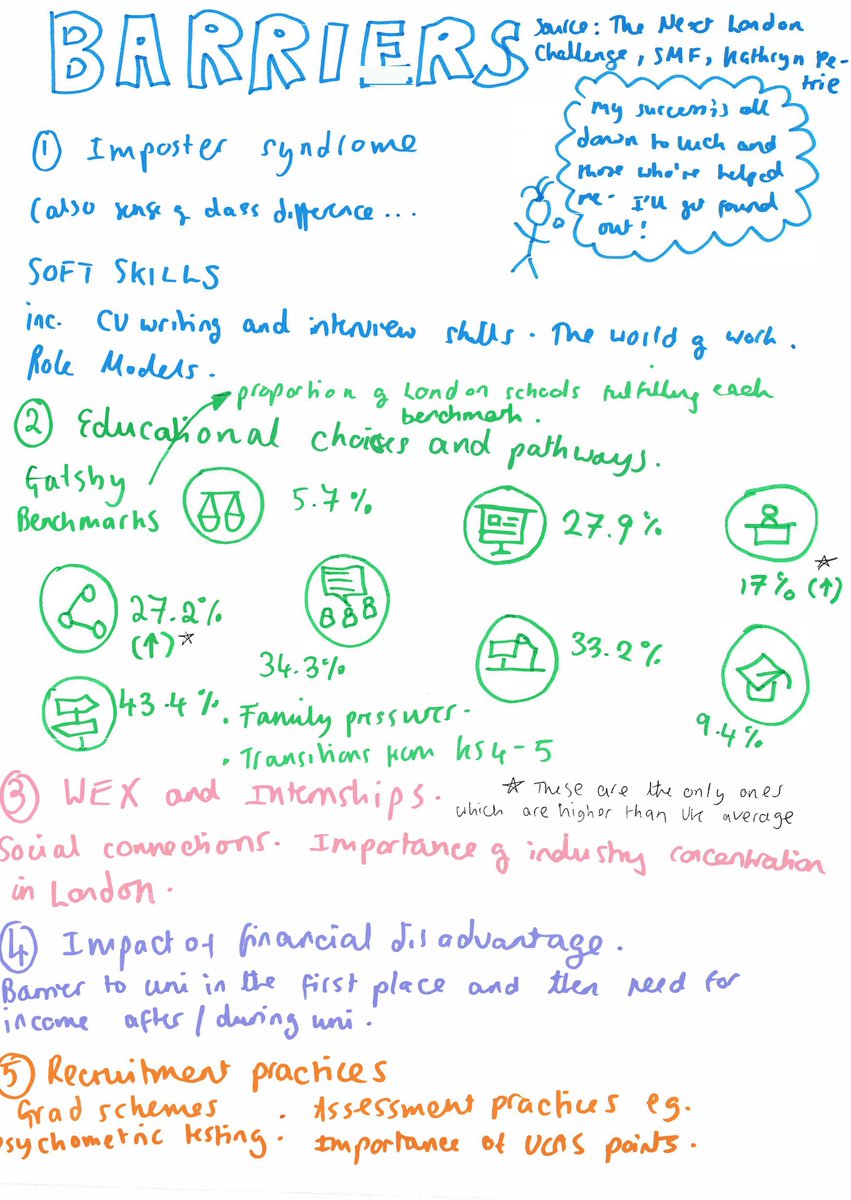 BARRIERS
Source: The Next London
Challenge, SMF, Kathryn Pe-
trie
My success is all
down to luck and
those who've helped
me. I'll get found
out!
① Imposter syndrome
(also sense of class difference...
SOFT SKILLS
inc. CV writing and interview skills. The world of work.
Role Models.
proportion of London schools fulfilling each
benchmark.
② Educational choices and pathways.
Gatsby
Benchmarks
5.7%
27.9%
17% (↑) ☆
27.2%
(↑) ☆
34.3%
33.2%
9.4%
43.4%
. Family pressures.
. Transitions from KS4-5
③ WEX and Internships.
☆ These are the only ones
which are higher than UK average
Social connections. Importance of industry concentration
in London.
④ Impact of financial disadvantage.
Barrier to uni in the first place and then need for
income after/during uni.
⑤ Recruitment practices
Grad schemes . Assessment practices eg.
psychometric testing. Importance of UCAS points.